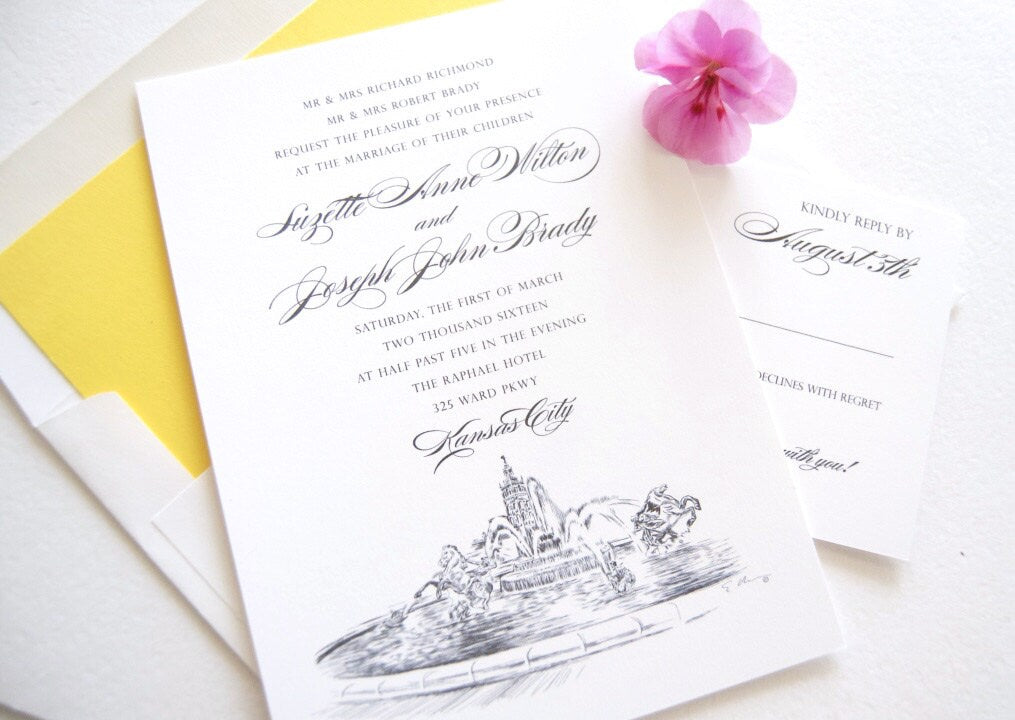 MR & MRS RICHARD RICHMOND
MR & MRS ROBERT BRADY
REQUEST THE PLEASURE OF YOUR PRESENCE
AT THE MARRIAGE OF THEIR CHILDREN
Suzette Anne Wilton
and
Joseph John Brady
SATURDAY, THE FIRST OF MARCH
TWO THOUSAND SIXTEEN
AT HALF PAST FIVE IN THE EVENING
THE RAPHAEL HOTEL
325 WARD PKWY
Kansas City
KINDLY REPLY BY
August 5th
DECLINES WITH REGRET
with you!